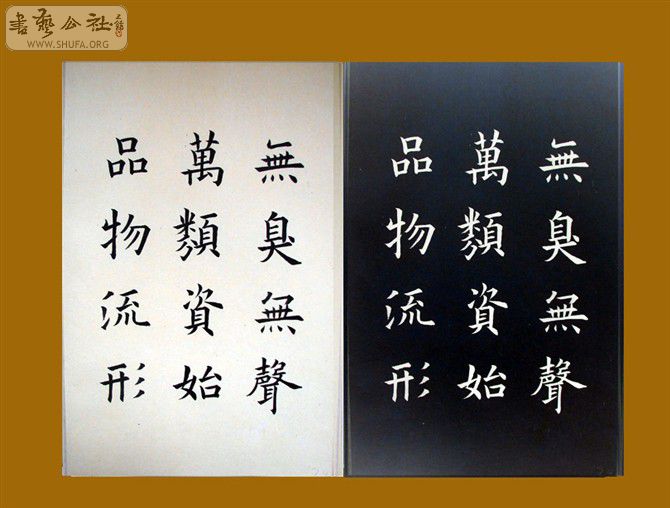 書藝公社
WWW.SHUFA.ORG
無臭無聲
萬類資始
品物流形
無臭無聲
萬類資始
品物流形